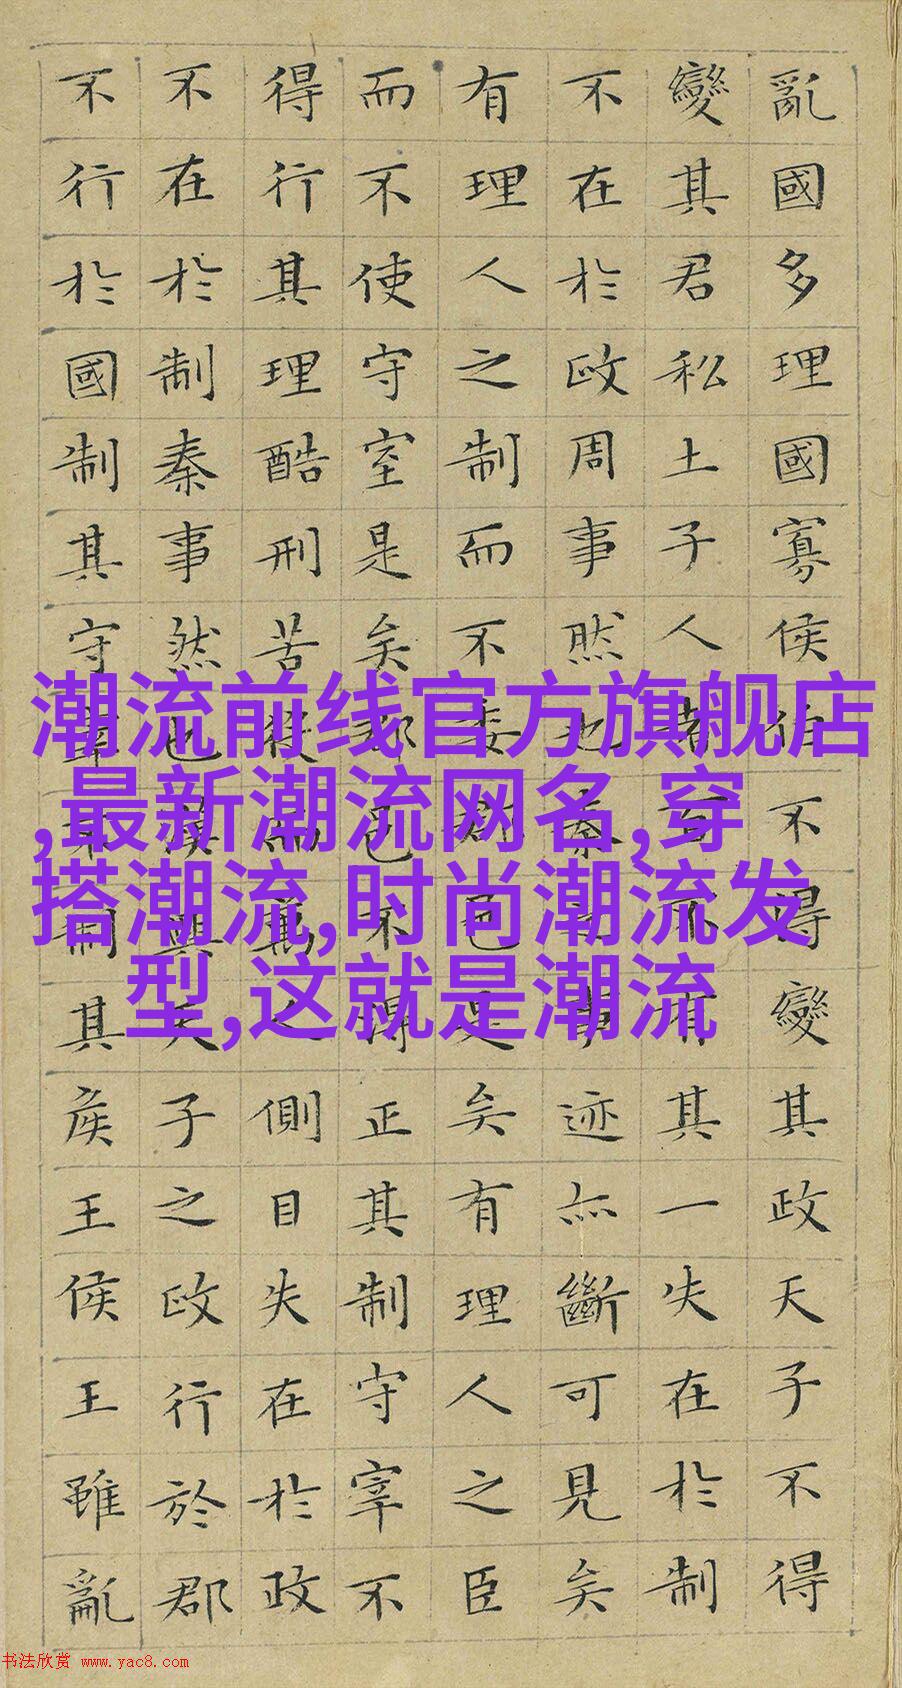 亂國多理國寡侯伯不得變其政天子不得
變其君私土子人者百不有其一失在於制
不在於政周事然也秦之事迹亦斷可見矣
有理人之制而不委郡邑是矣有理人之臣
而不使守宰是矣郡邑不得正其制守宰不
得行其理酷刑苦役而萬人側目失在於政
不在於制秦事然也漢興天子之政行於郡
不行於國制其守宰不制其侯王侯王雖亂
潮流前线官方旗舰店
,最新潮流网名,穿
搭潮流,时尚潮流发
型,这就是潮流
书法欣赏 www.yac8.com